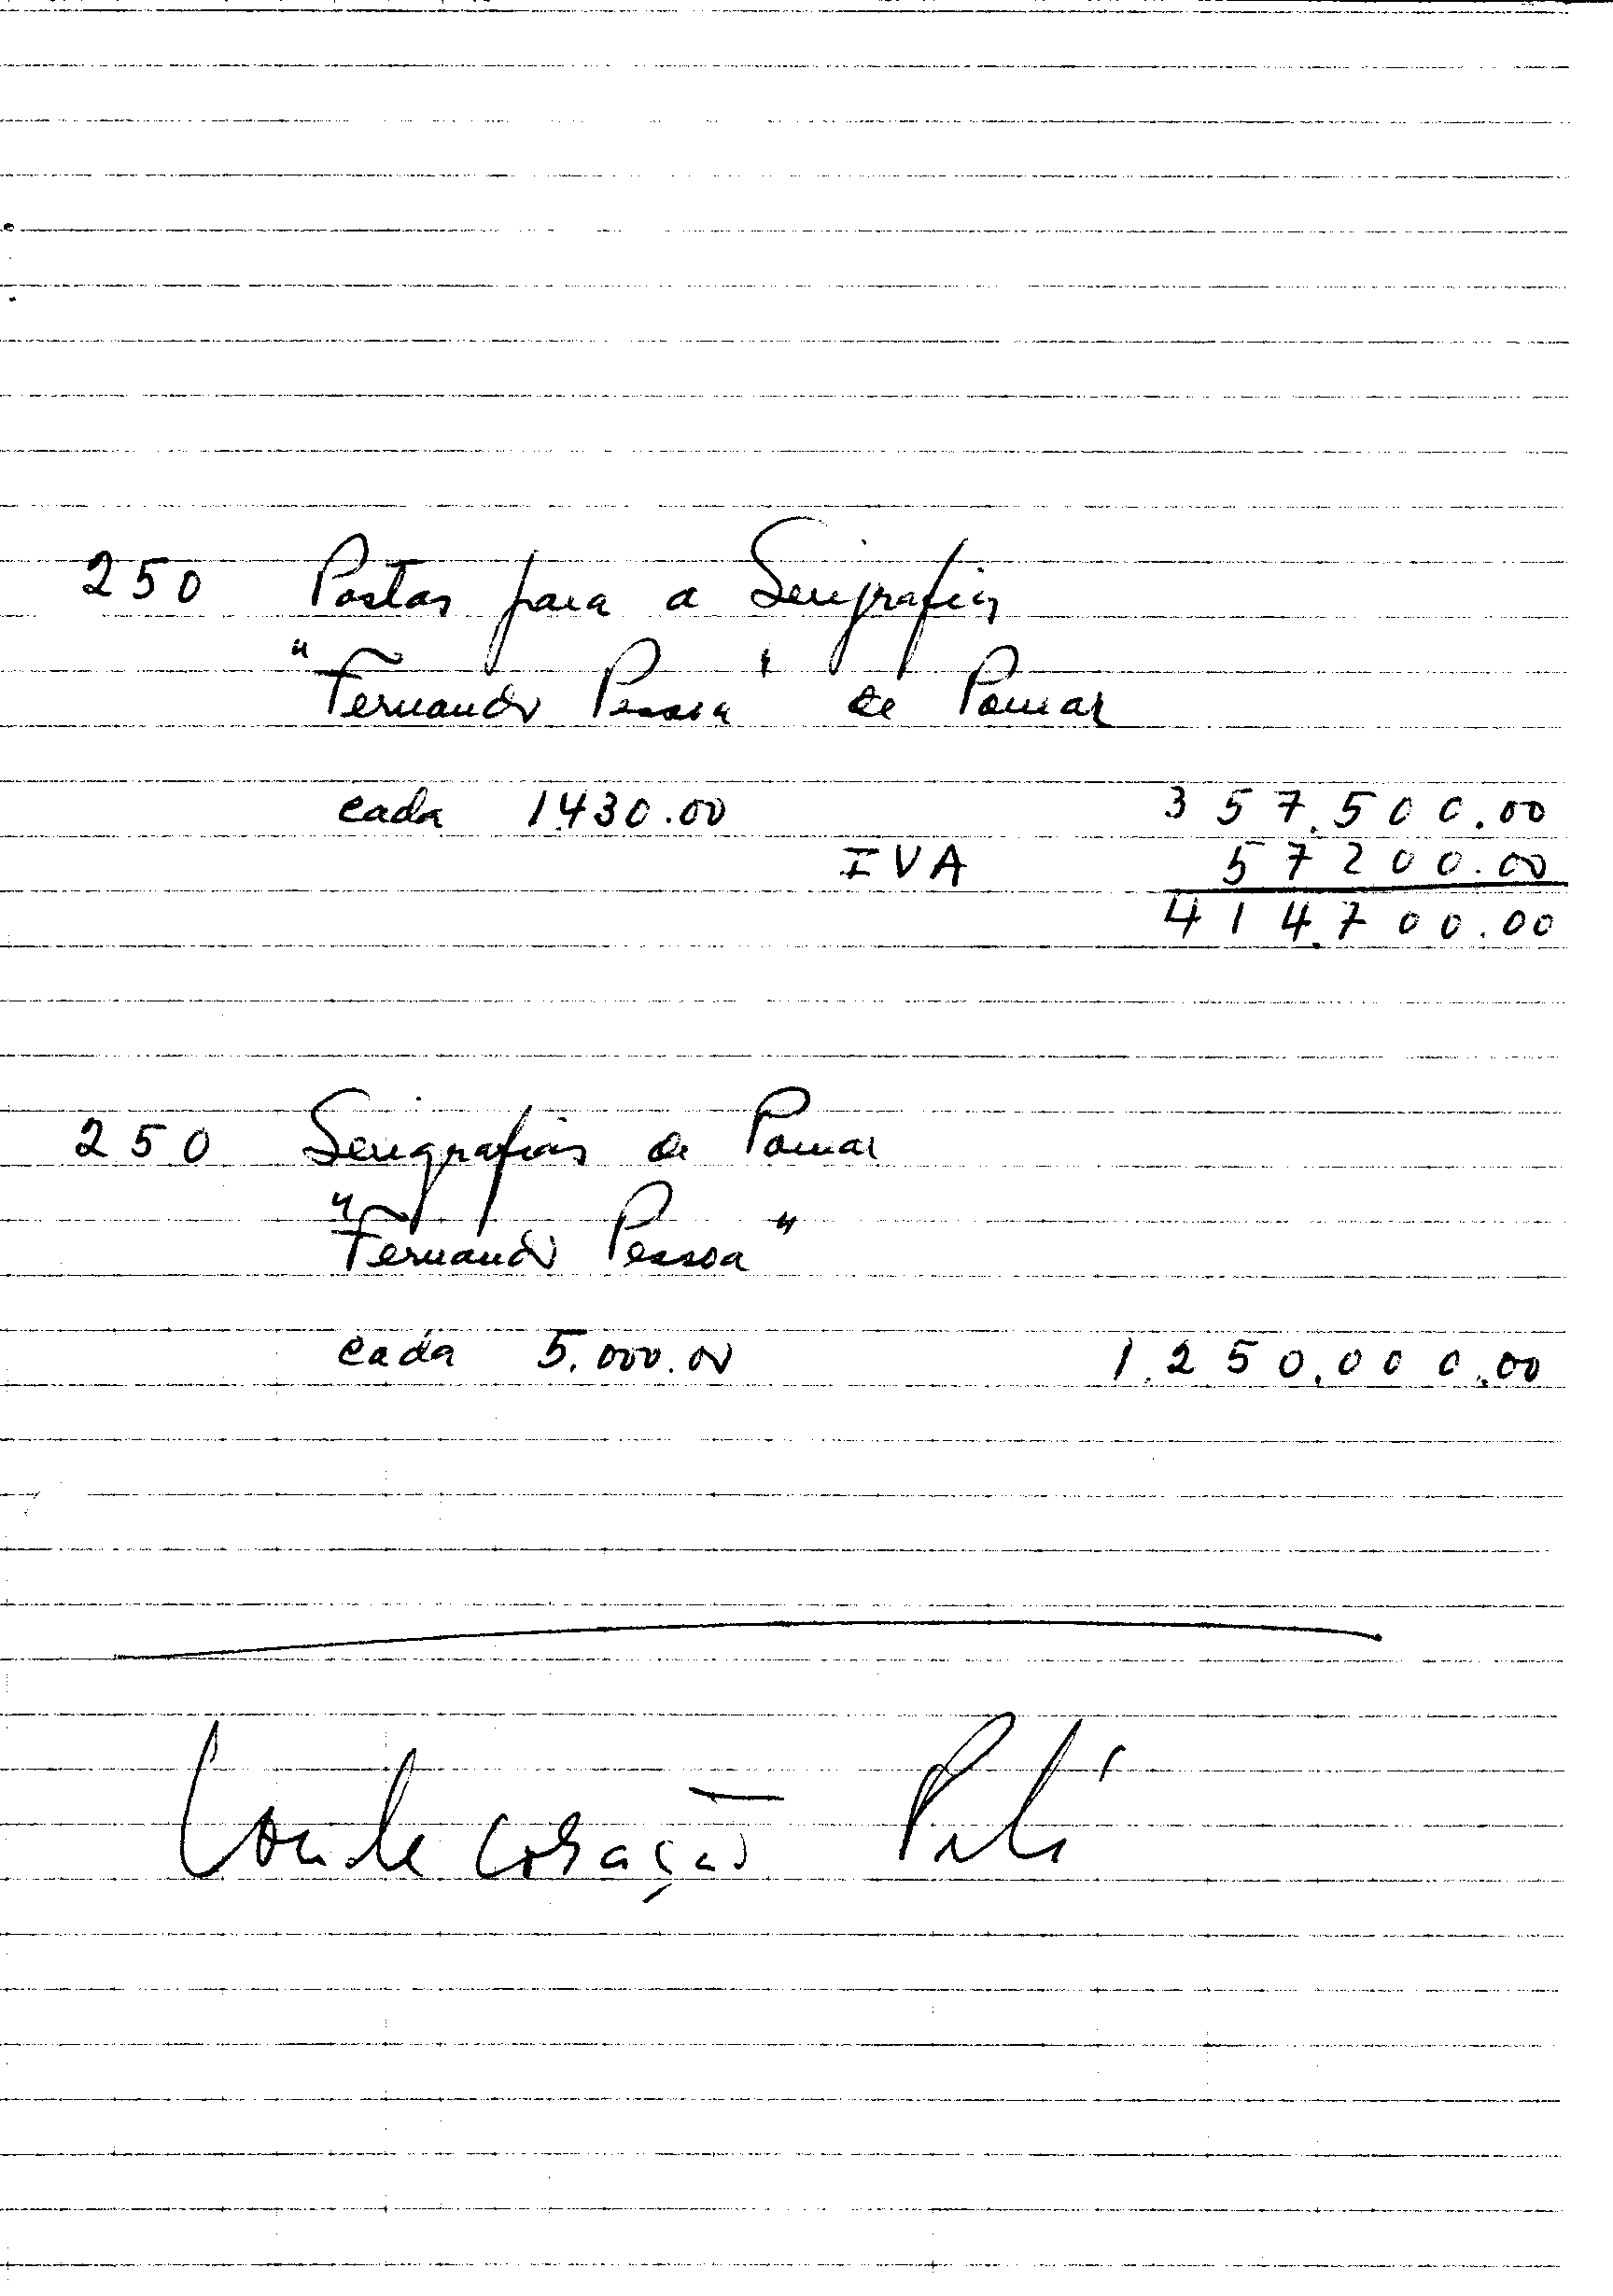 250 Pastas para a Serigrafia
"Fernando Pessoa" de Pomar
cada 1.430.00 357.500.00
IVA 57200.00
414.700.00
250 Serigrafias de Pomar
"Fernando Pessoa"
cada 5.000.00 1.250.000.00
Conde Coração